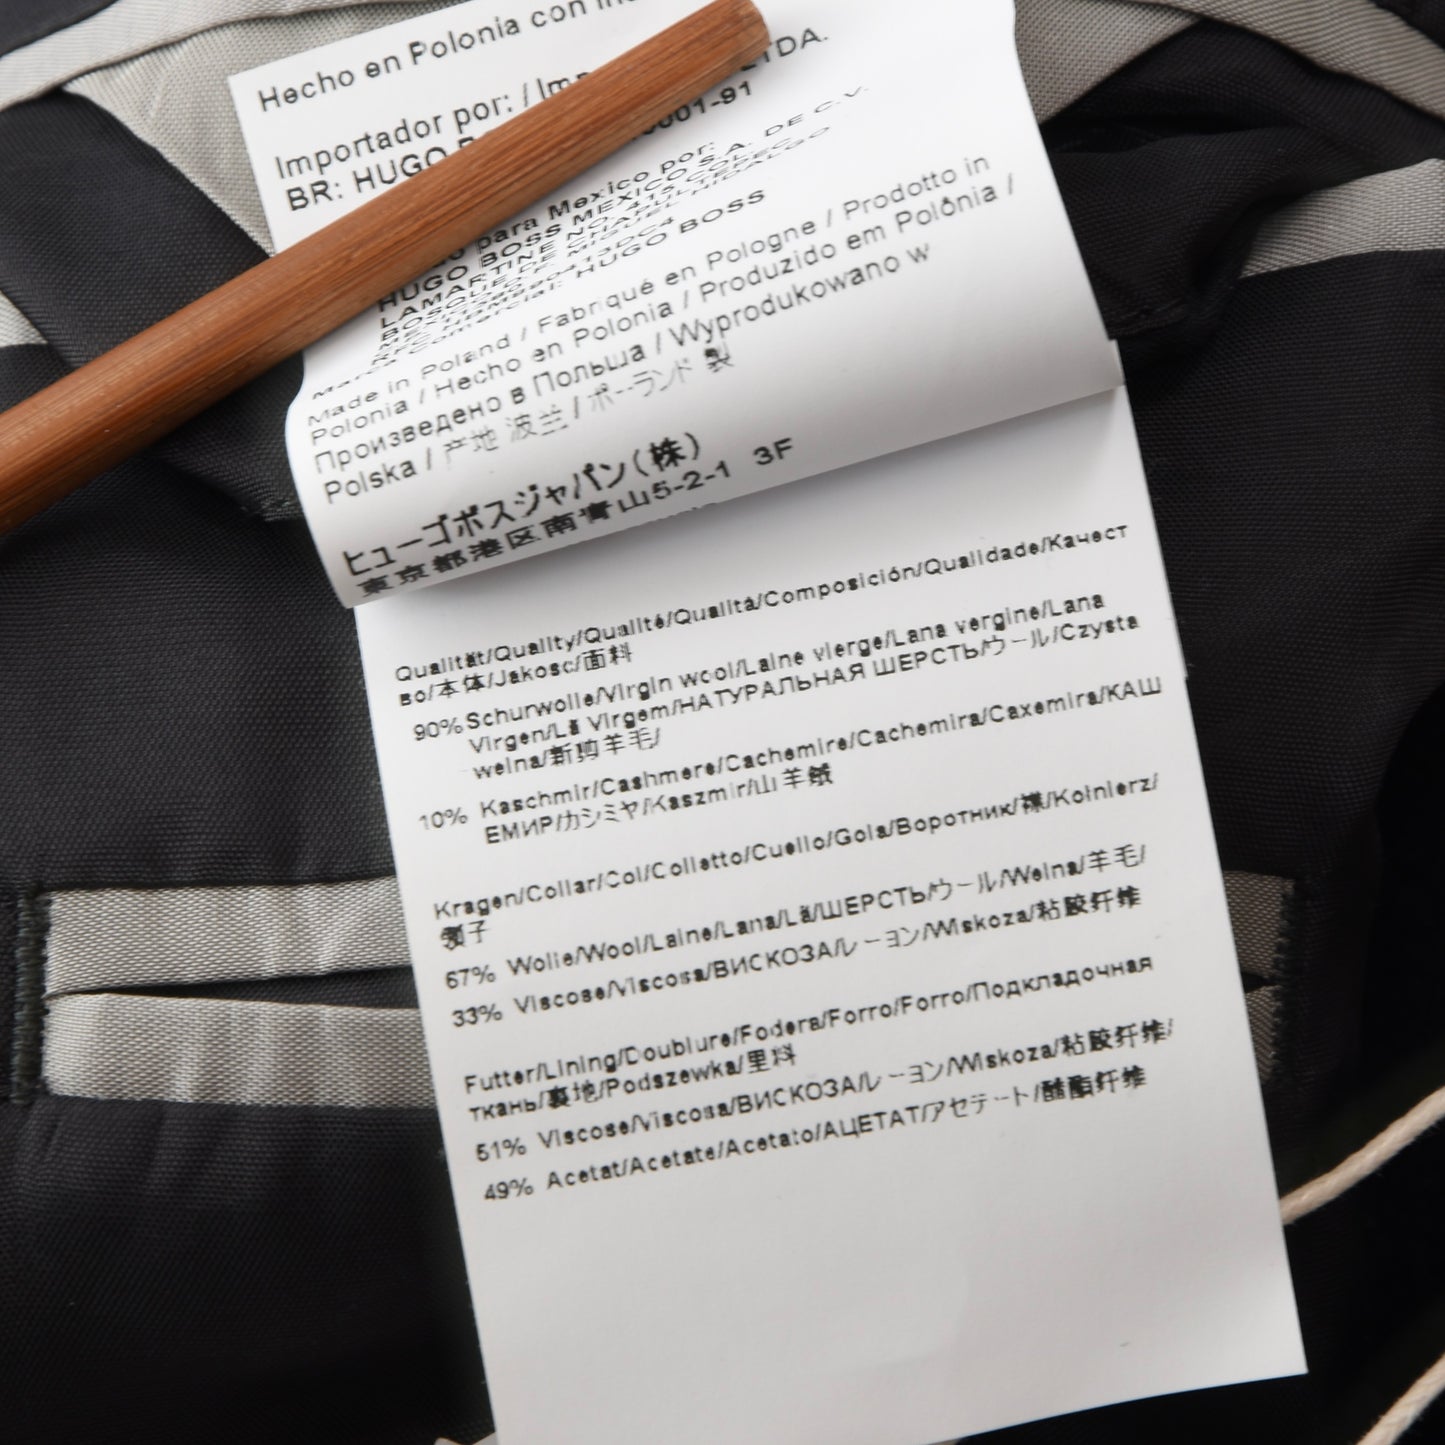 Hecho en Polonia con
Importador por: /
BR: HUGO LTDA.
0001-91
para Mexico por:
HUGO BOSS MEXICO S.A. DE C.V.
LAMARTINE NO. 415 COL.
BOSQUE DE CHAPULTEPEC
MIGUEL HIDALGO
Marca Comercial: HUGO BOSS
Made in Poland / Fabriqué en Pologne / Prodotto in
Polonia / Hecho en Polonia / Produzido em Polônia /
Произведено в Польша / Wyprodukowano w
Polska / 产地 波兰 / ポーランド 製
ヒューゴボスジャパン(株)
東京都港区南青山5-2-1 3F
Qualität/Quality/Qualité/Qualità/Composición/Qualidade/Качест
во/本体/Jakosc/面料
90% Schurwolle/Virgin wool/Laine vierge/Lana vergine/Lana
Virgen/Lã Virgem/НАТУРАЛЬНАЯ ШЕРСТЬ/ウール/Czysta
welna/新购羊毛/
10% Kaschmir/Cashmere/Cachemire/Cachemira/Caxemira/КАШ
ЕМИР/カシミヤ/Kaszmir/山羊绒
Kragen/Collar/Col/Colletto/Cuello/Gola/Воротник/襟/Kołnierz/
领子
67% Wolle/Wool/Laine/Lana/Lã/ШЕРСТЬ/ウール/Welna/羊毛/
33% Viscose/Viscosa/ВИСКОЗА/レーヨン/Wiskoza/粘胶纤维
Futter/Lining/Doublure/Fodera/Forro/Forro/Подкладочная
ткань/裏地/Podszewka/里料
51% Viscose/Viscosa/ВИСКОЗА/レーヨン/Wiskoza/粘胶纤维/
49% Acetat/Acetate/Acetato/АЦЕТАТ/アセテート/醋酯纤维